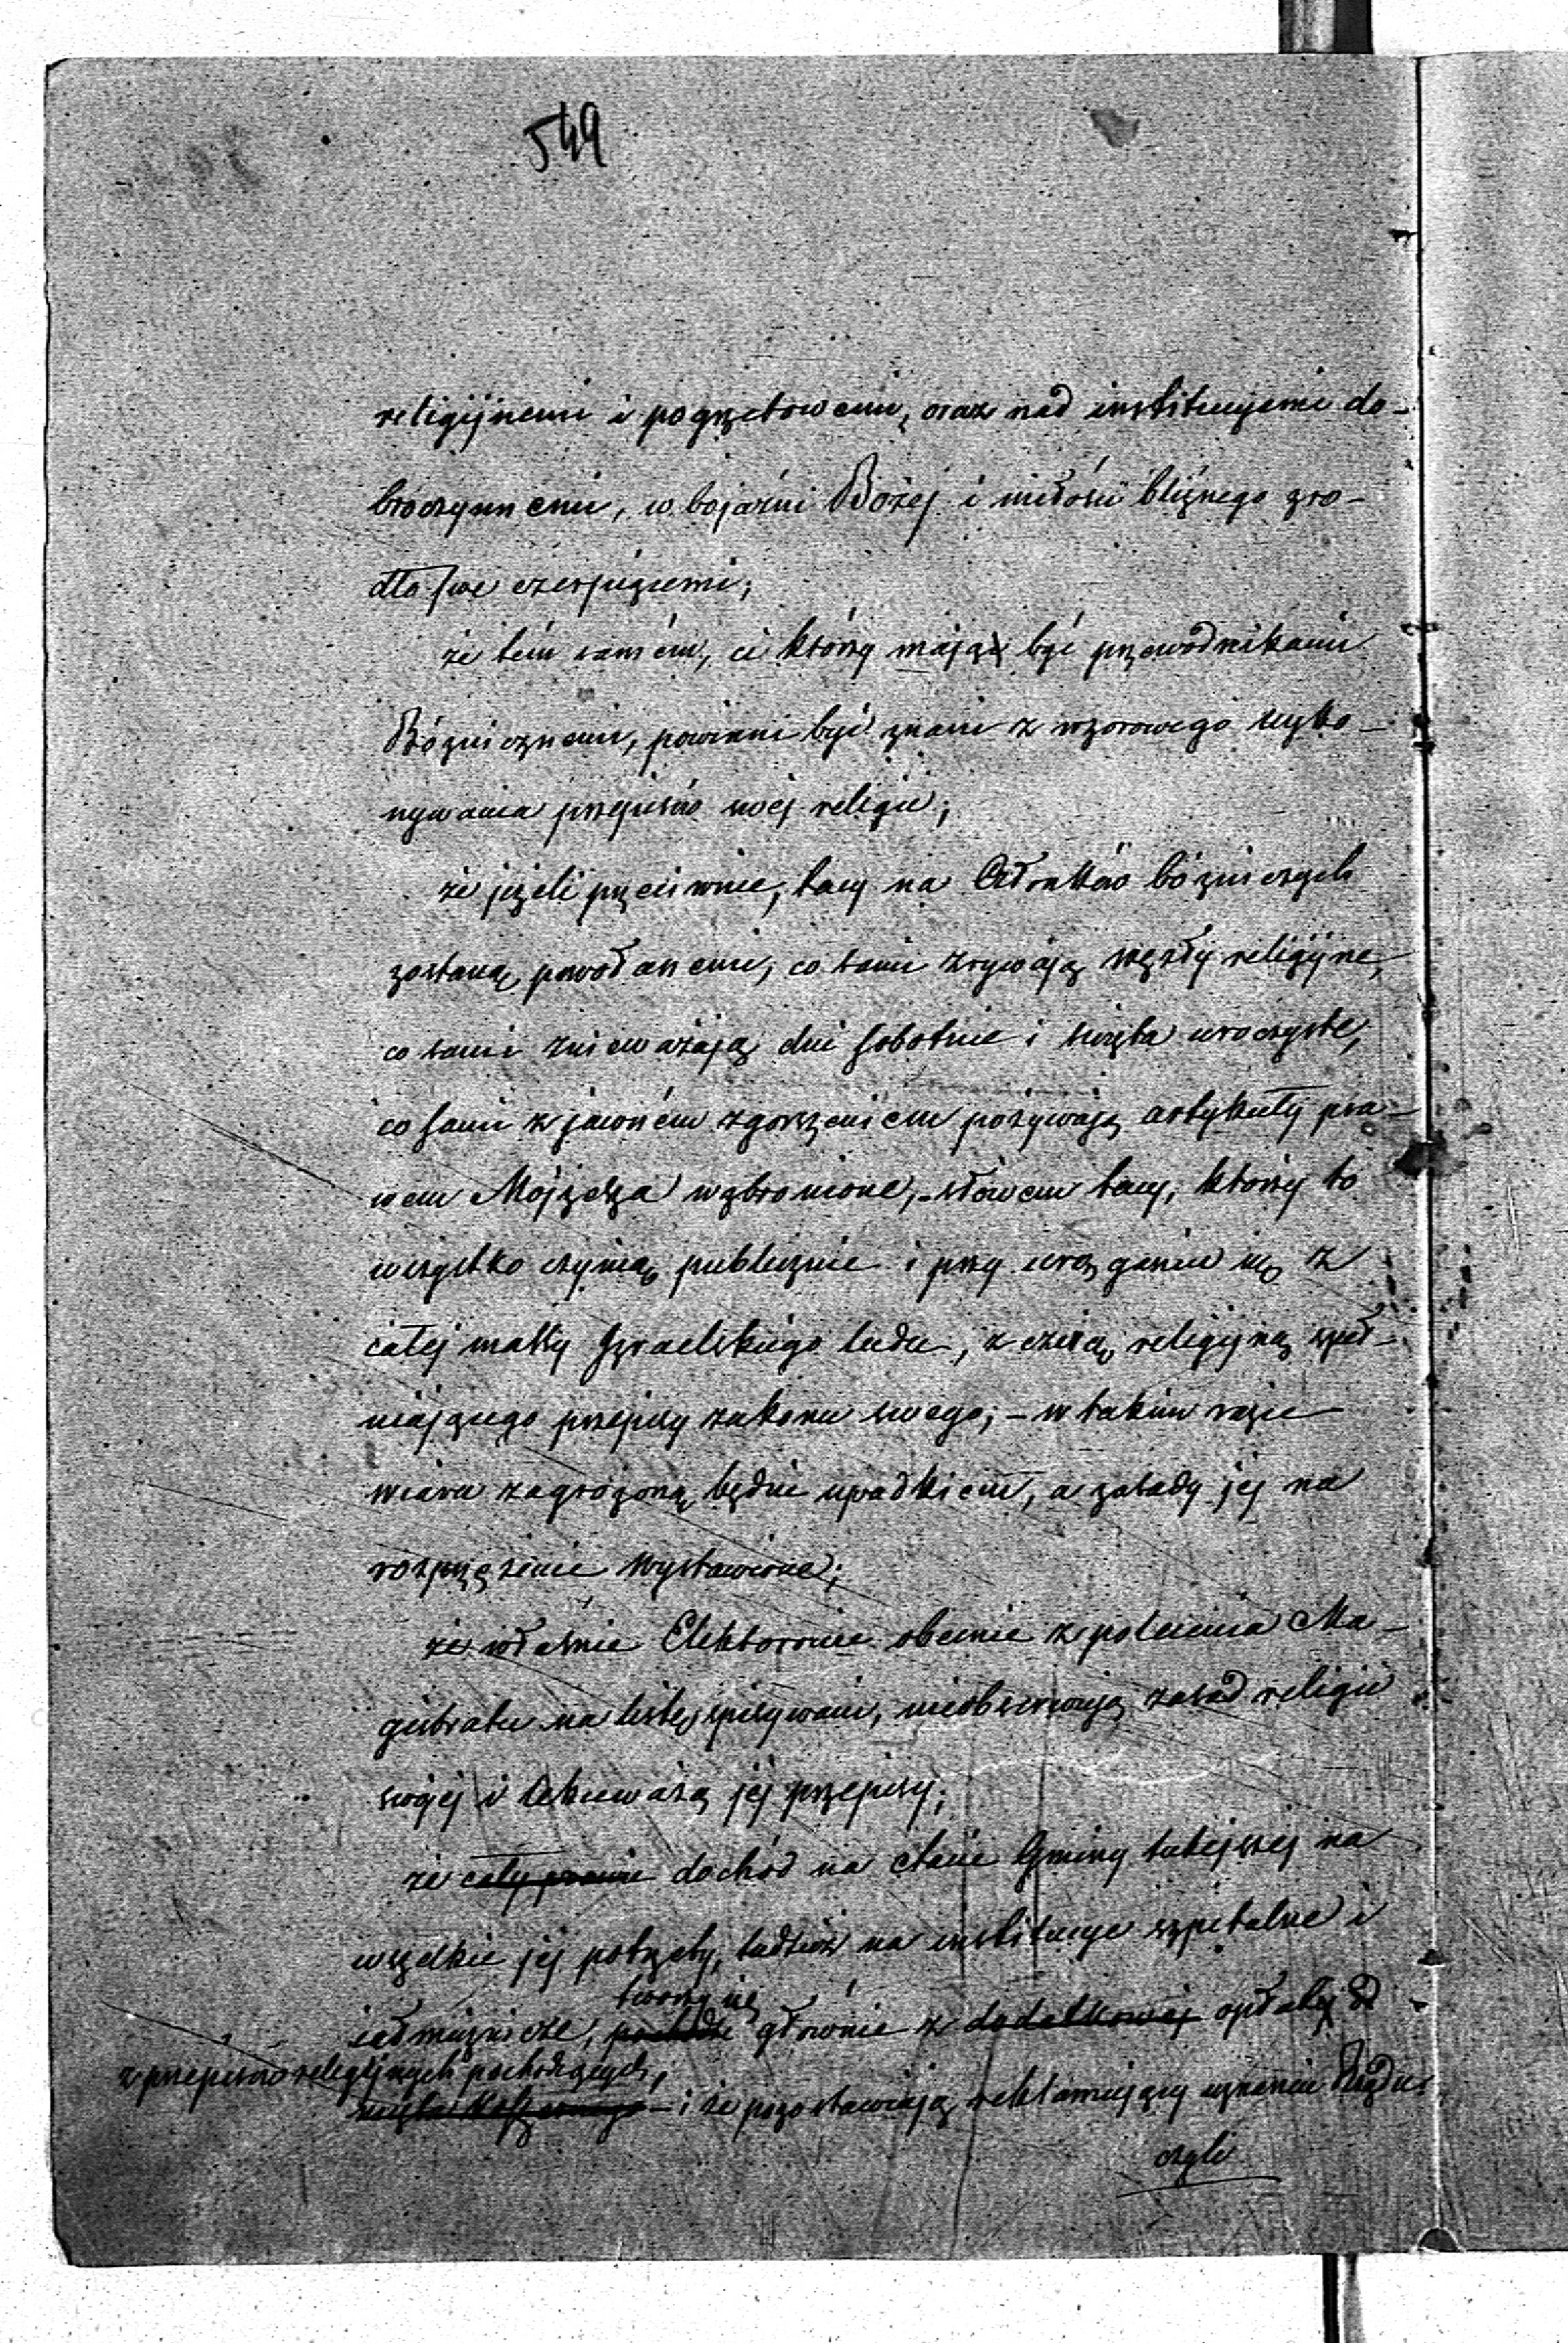 549
religijnemi i pogrzebowemi, oraz nad instytucyjami do-
broczynnemi, w bojaźni Bożej i miłości bliźnego źro-
dło swe czerpiącemi;
że tém samém, ci którzy mają być przewodnikami
Bóżnicznemi, powinni być znani z wzorowego wyko-
nywania przepisów swej religii;
że jeżeli przeciwnie, tacy na Członków bóżniczych
zostaną powołanemi, co sami zrywają węzły religijne,
co sami znieważają dni sobotnie i święta uroczyste,
co sami z jawném zgorszeniem pożywają artykuły pra-
wem Mojżesza wzbronione, - słowem tacy, którzy to
wszystko czynią publicznie i przy urąganiu się z
całej massy Izraelskiego ludu, z czcią religijną speł-
niającego przepisy zakonu swego; - w takim razie
wiara zagrożoną będzie upadkiem, a zasady jej na
rozprzężenie wystawione;
że właśnie Elektorowie obecnie z polecenia Ma-
gistratu na listę spisywani, nieobserwują zasad religii
swojej i lekceważą jej przepisy;
że cały prawie dochód na etacie Gminy tutejszej na
wszelkie jej potrzeby, tudzież na instytucye szpitalne i
tworzy się
jałmużnicze, głównie z dodatkowej opłaty od
z przepisów religijnych pochodzących,
mięsa koszernego - i że pozostawiają reklamujący uznaniu Rządu:
czyli